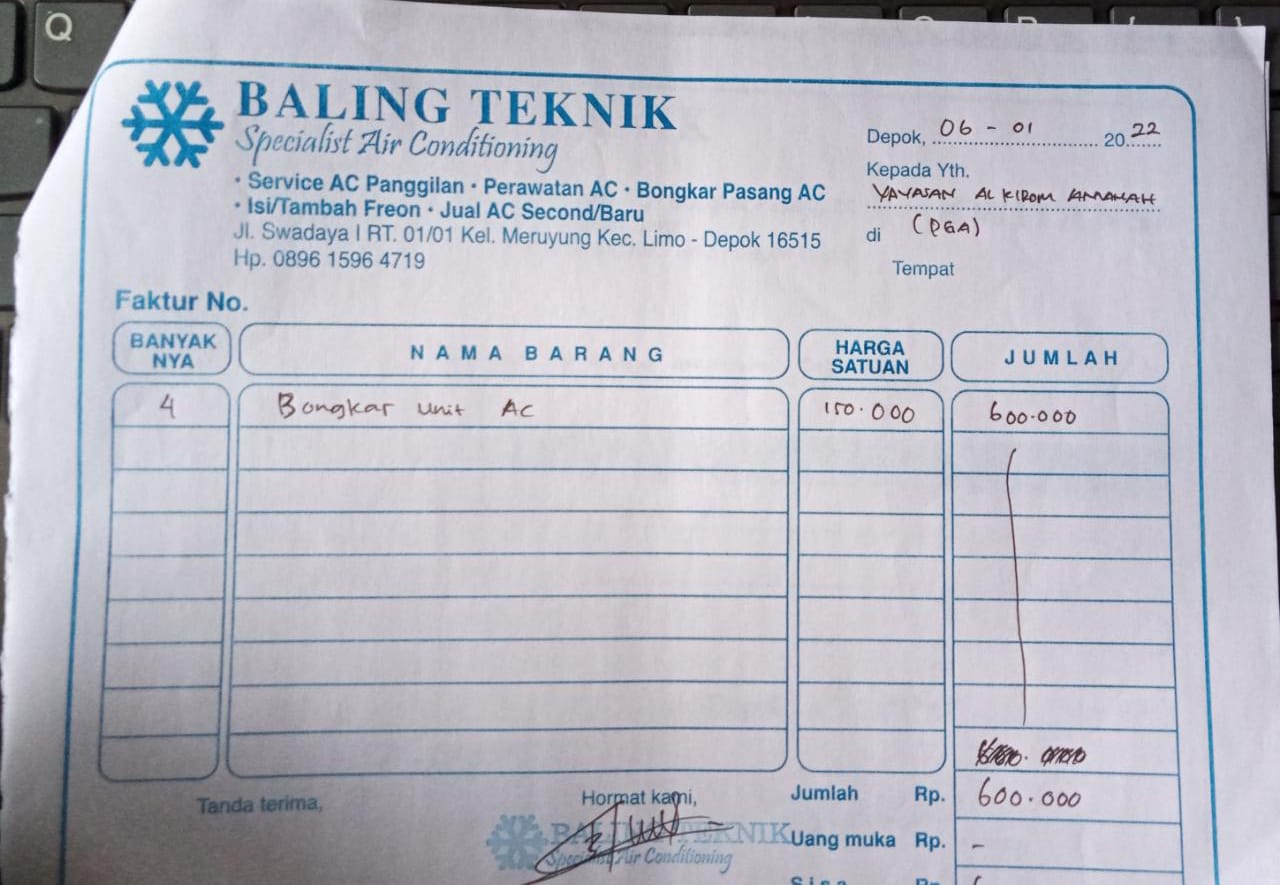 Q
BALING TEKNIK
Specialist Air Conditioning
• Service AC Panggilan • Perawatan AC • Bongkar Pasang AC
• Isi/Tambah Freon • Jual AC Second/Baru
Jl. Swadaya I RT. 01/01 Kel. Meruyung Kec. Limo - Depok 16515
Hp. 0896 1596 4719
Depok, 06 - 01 2022
Kepada Yth.
YAYASAN AL KIROM AMANAH
di (PGA)
Tempat
Faktur No.
BANYAK NYA NAMA BARANG HARGA SATUAN JUMLAH
4 Bongkar unit AC 150.000 600.000
Tanda terima, Hormat kami, Jumlah Rp. 600.000
BALING TEKNIK Uang muka Rp. -
Specialist Air Conditioning
Sisa Rp